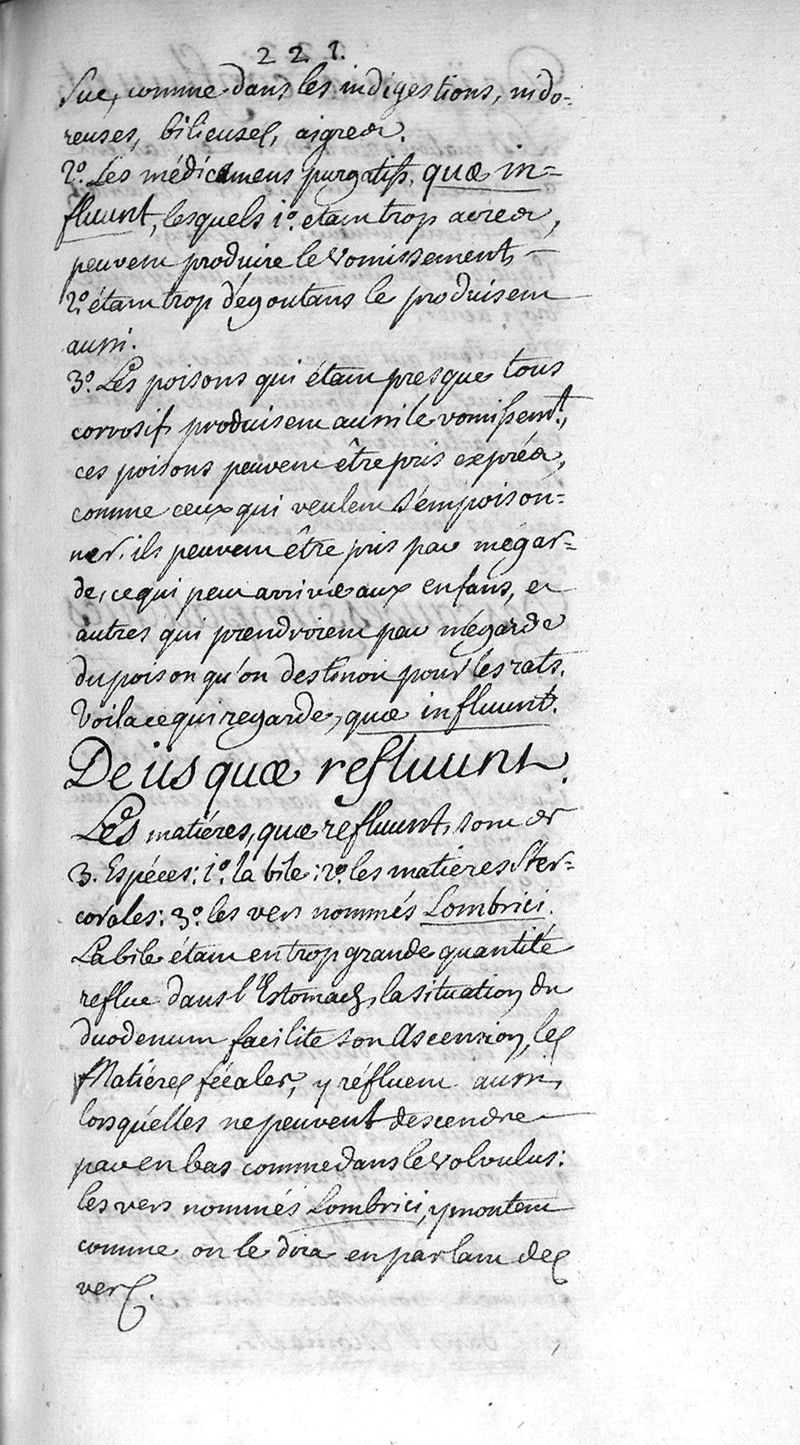 221.
Suc, comme dans les indigestions, nido-
reuses, bilieuses, aigres.
2º. Les médicamens purgatifs, quæ in=
fluunt, lesquels 1º. étant trop acres,
peuvent produire le vomissement, —
2º. étant trop dégoutans le produisent
aussi.
3º. Les poisons qui étant presque tous
corrosifs produisent aussi le vomissemt.,
ces poisons peuvent être pris exprés,
comme ceux qui veulent s'empoison=
ner. ils peuvent être pris par mégar=
de, ce qui peut arriver aux enfans, et
autres qui prendroient par mégarde
du poison qu'on destinoit pour les rats.
Voila ce qui regarde, quæ influunt.
De iis quæ refluunt.
Les matiéres, quæ refluunt, sont de
3. Espéces: 1º. la bile: 2º. les matieres Ster=
corales: 3º. les vers nommés Lombrici.
La bile étant en trop grande quantité
reflue dans l'Estomach, la situation du
duodenum facilite son Ascension, les
Matiéres fécales, y réfluent aussi,
lorsqu'elles ne peuvent descendre
par en bas comme dans le volvulus:
les vers nommés Lombrici, y montent
comme on le dira en parlant des
vers.